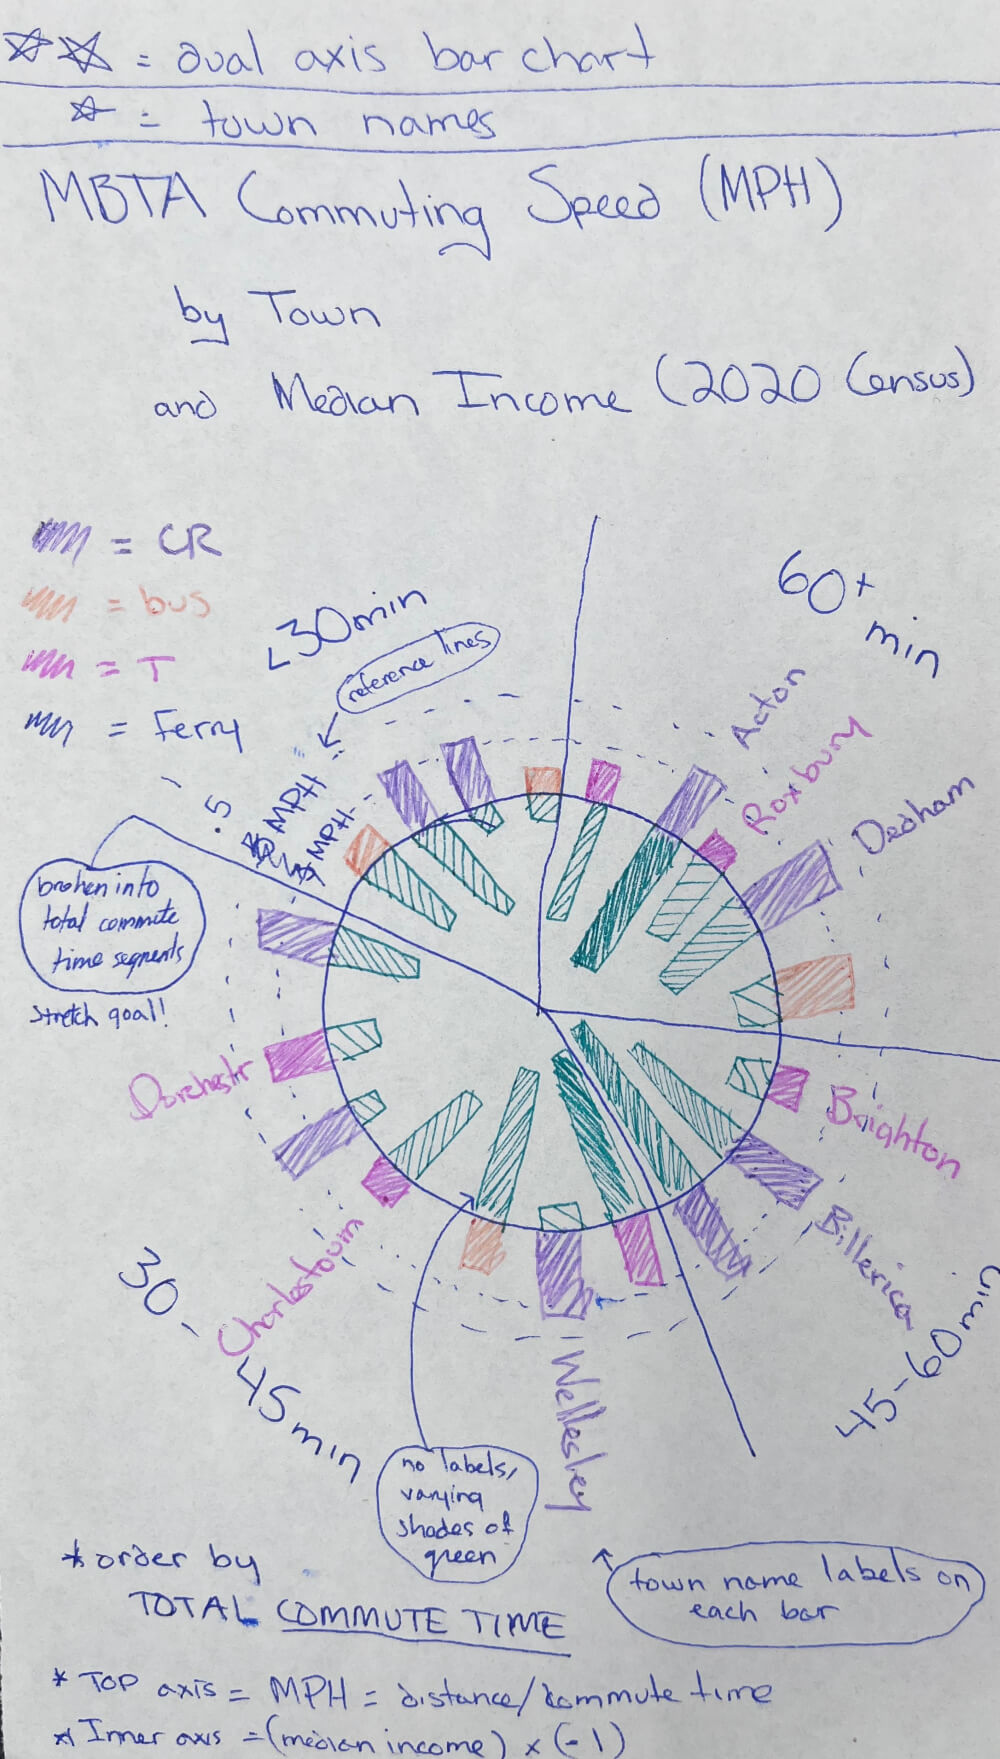 = dual axis bar chart
= town names
MBTA Commuting Speed (MPH)
by Town
and Median Income (2020 Census)
= CR
= bus
= T
= Ferry
<30min
reference lines
60+
min
.5
MPH
MPH
Acton
Roxbury
Dedham
broken into
total commute
time segments
stretch goal!
Dorchestr
Brighton
Billerica
Charlestown
Wellesley
30-
45min
45-60min
no labels,
varying
shades of
green
town name labels on
each bar
* order by
TOTAL COMMUTE TIME
* TOP axis = MPH = distance/commute time
* Inner axis = (median income) x (-1)